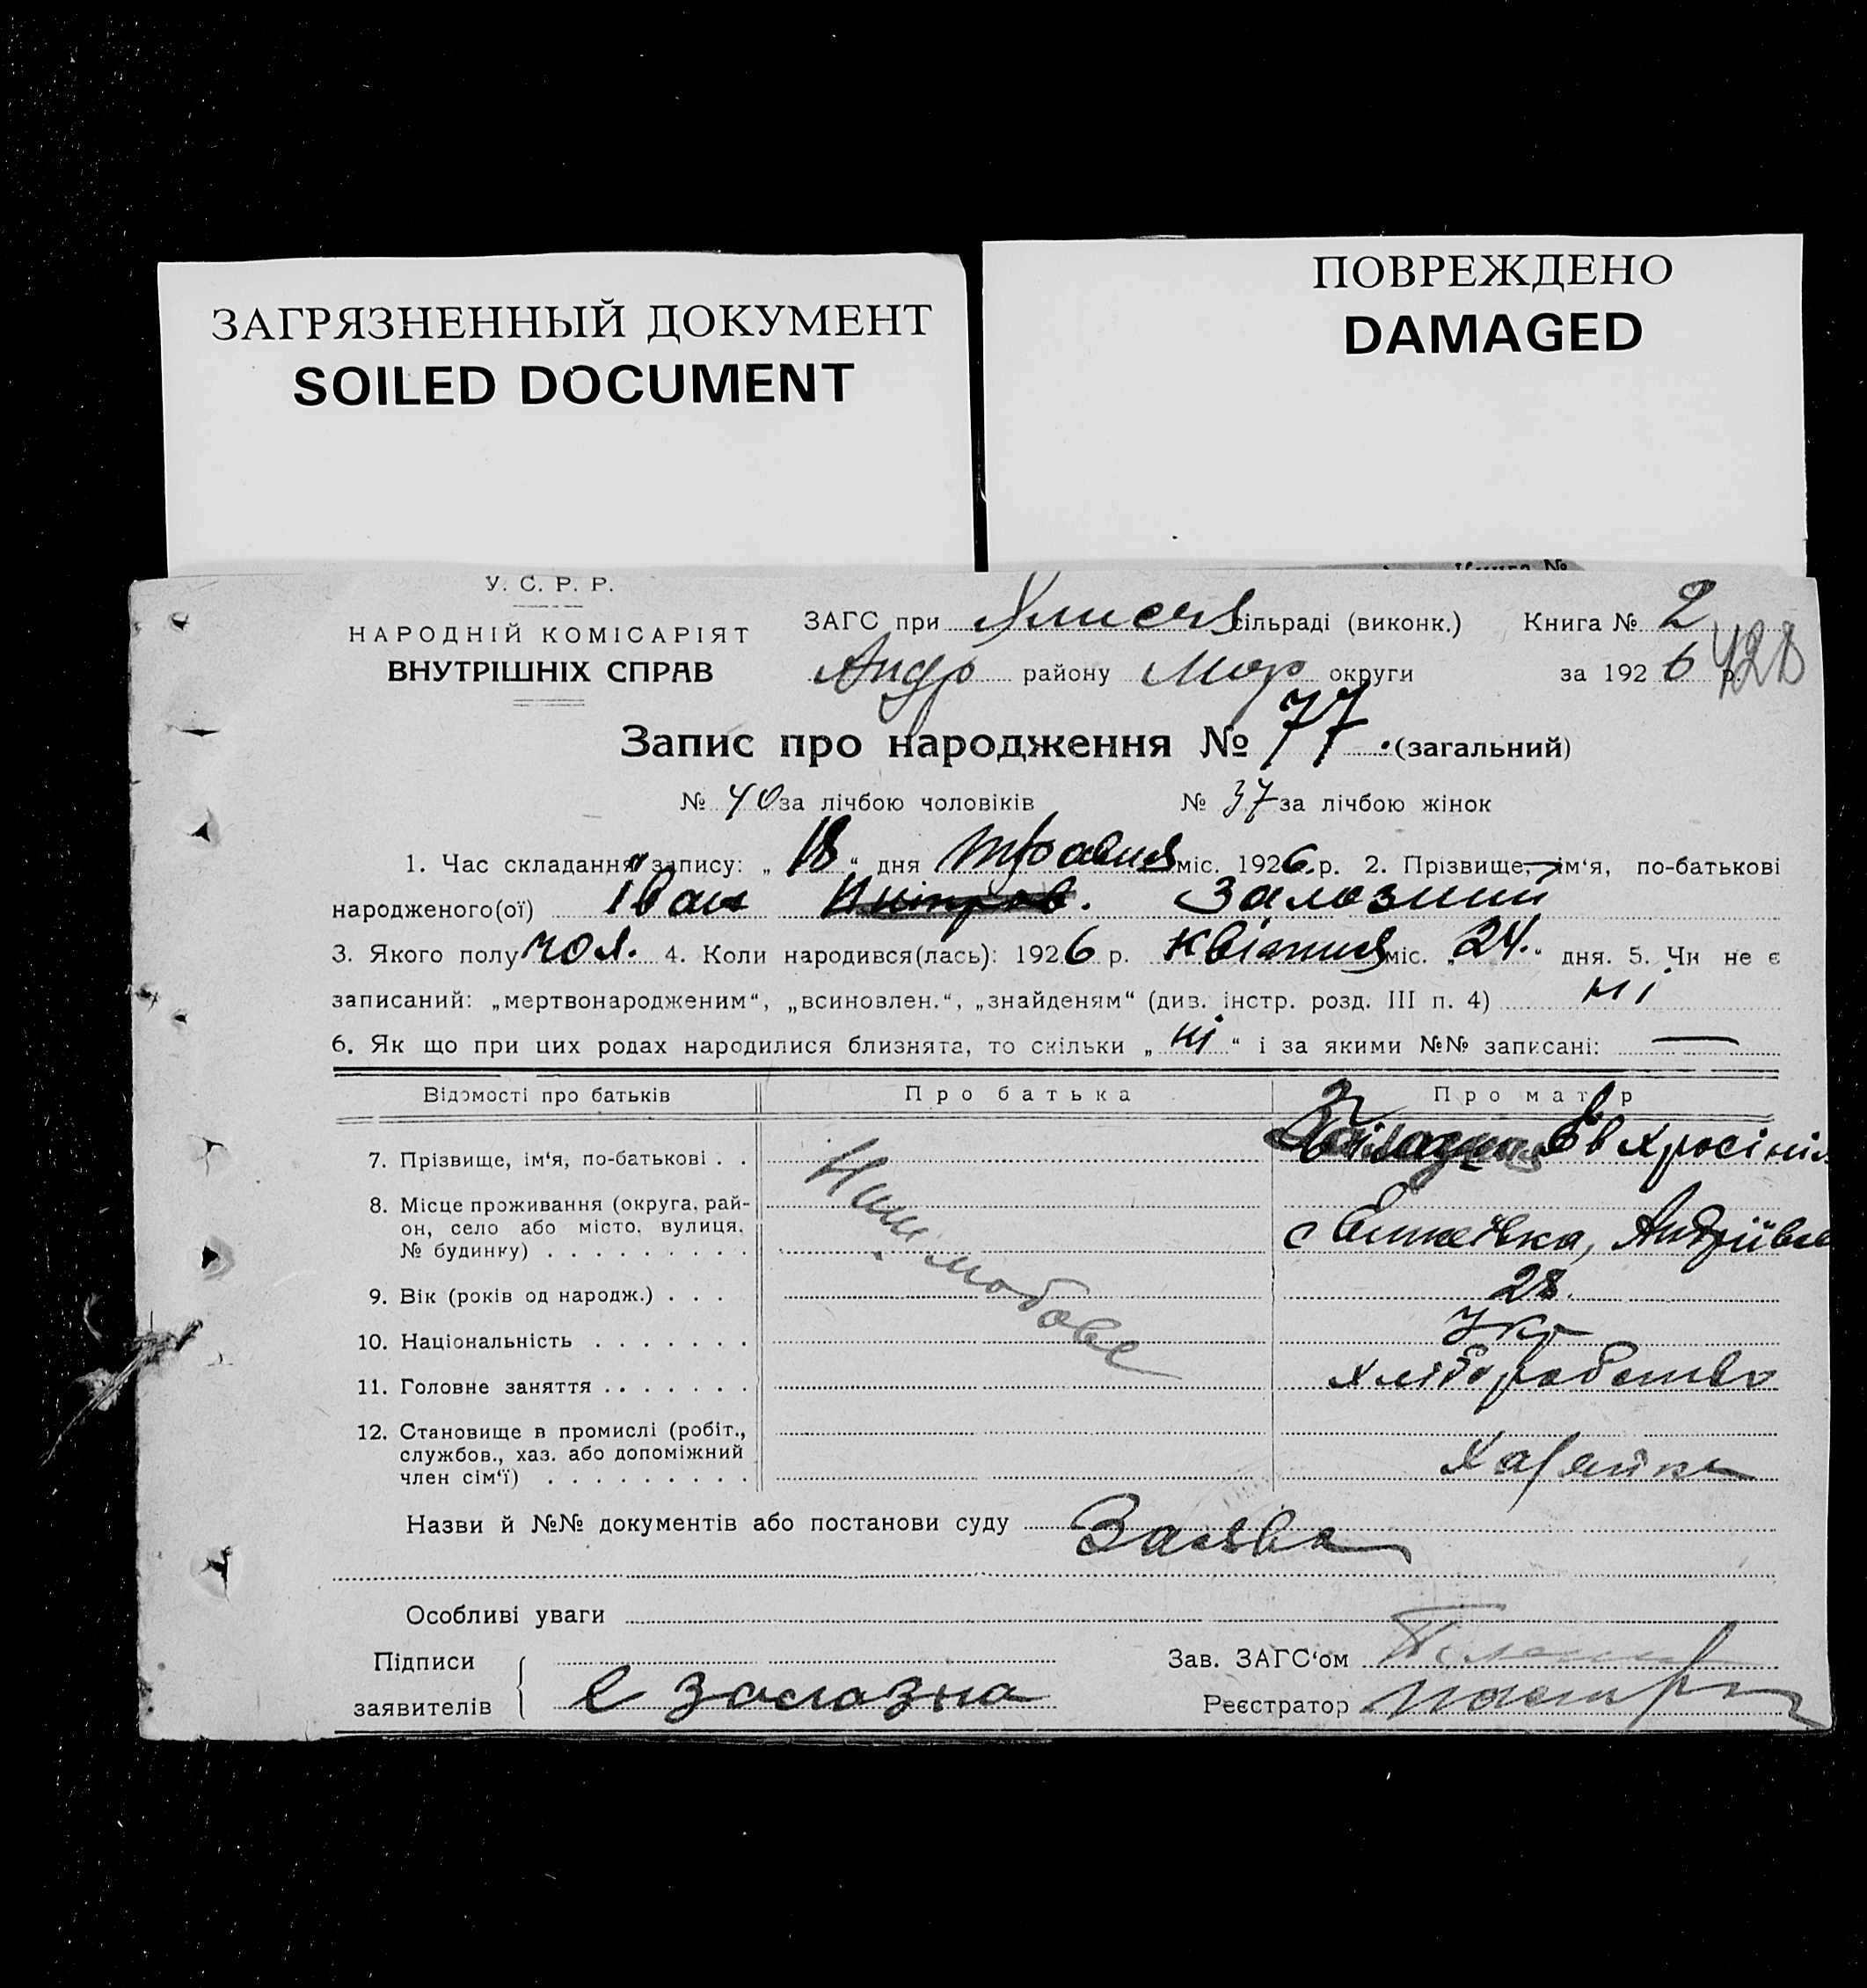 ЗАГРЯЗНЕННЫЙ ДОКУМЕНТ
SOILED DOCUMENT
ПОВРЕЖДЕНО
DAMAGED
У. С. Р. Р.
НАРОДНІЙ КОМІСАРІЯТ
ВНУТРІШНІХ СПРАВ
ЗАГС при сільраді (виконк.) Книга № 2
Андр району Мар округи за 1926 р. 428
Запис про народження № 77 (загальний)
№ 40 за лічбою чоловіків № 37 за лічбою жінок
1. Час складання запису: „ 18 “ дня травня міс. 1926 р. 2. Прізвище, ім‘я, по-батькові
народженого(ої) Іван Залозний
3. Якого полу чол. 4. Коли народився(лась): 1926 р. квітня міс. „ 24 “ дня. 5. Чи не є
записаний: „мертвонародженим“, „всиновлен.“, „знайденям“ (див. інстр. розд. III п. 4) ні
6. Як що при цих родах народилися близнята, то скільки „ ні “ і за якими №№ записані: —
Відомості про батьків Про батька Про матір
7. Прізвище, ім‘я, по-батькові . . Евхросінія
8. Місце проживання (округа, рай-
он, село або місто, вулиця,
№ будинку)
9. Вік (років од народж.) . . . 28.
10. Національність Укр
11. Головне заняття хліборобство
12. Становище в промислі (робіт.,
службов., хаз. або допоміжний
член сім‘ї) Хазяйка
Назви й №№ документів або постанови суду Заява
Особливі уваги
Підписи
заявителів Е Залозна
Зав. ЗАГС‘ом
Реєстратор